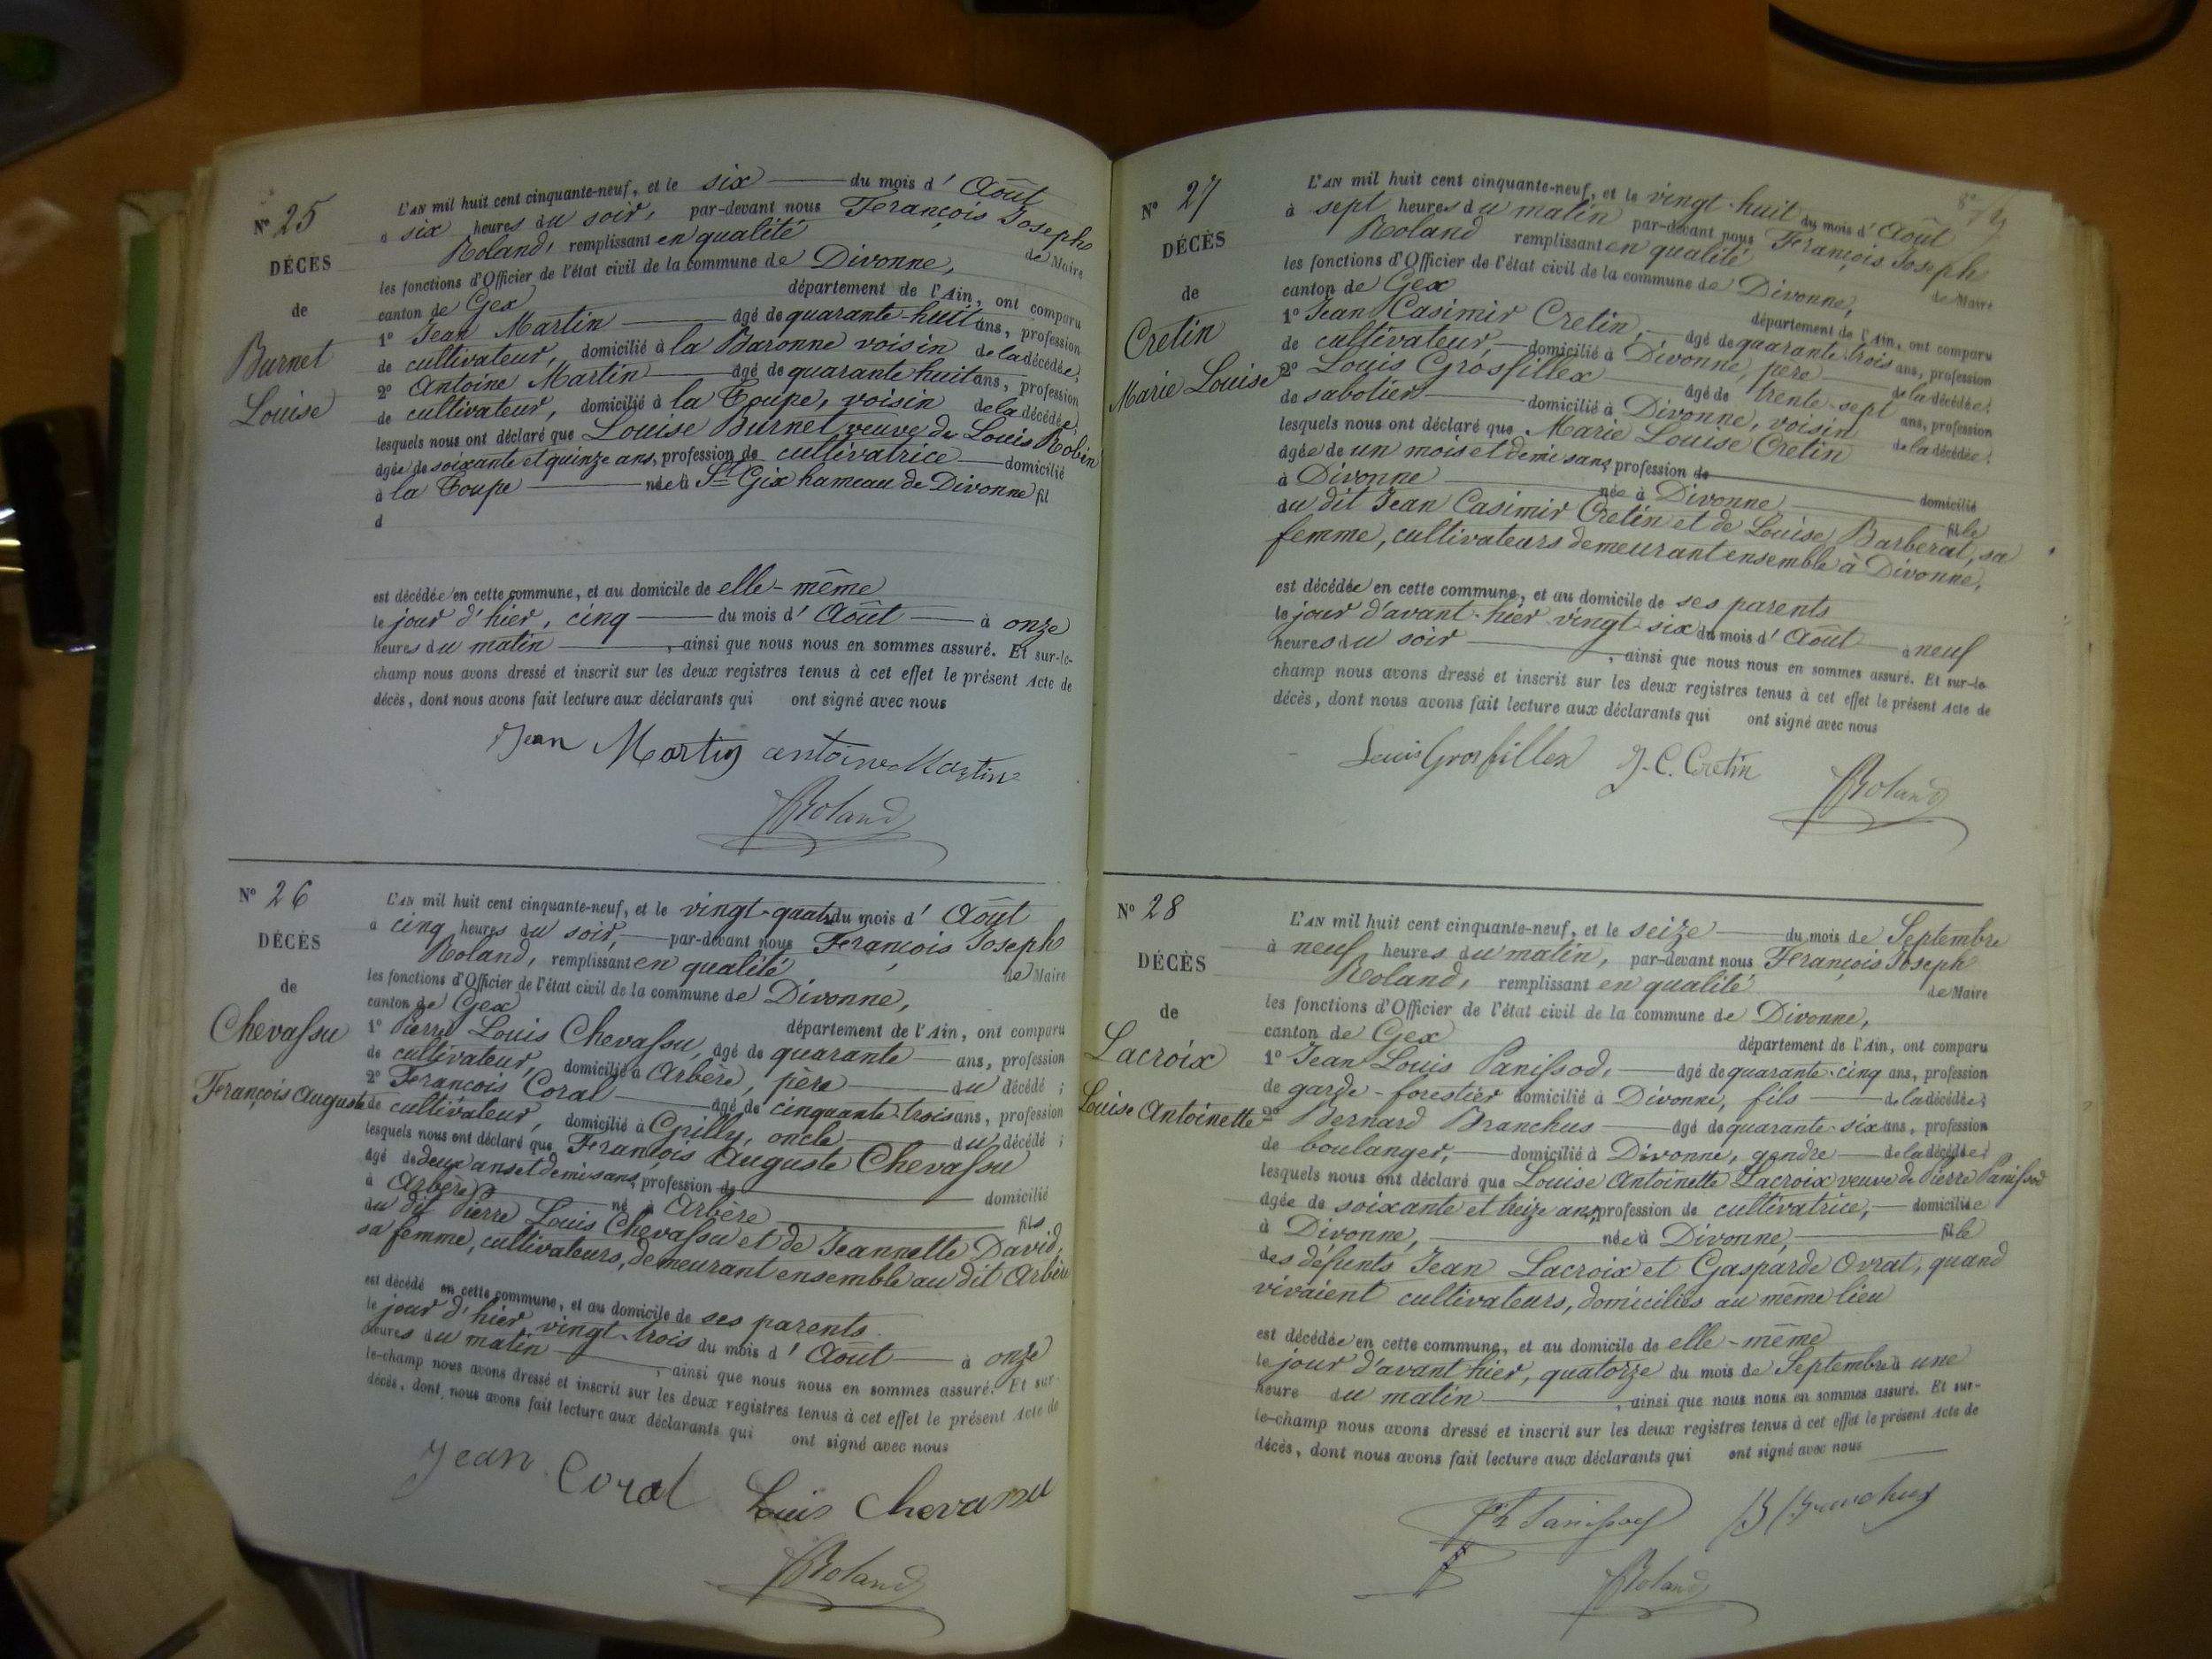 N° 25
DÉCÈS
de
Burnet
Louise
L'AN mil huit cent cinquante-neuf, et le six du mois d' Août
à six heures du soir, par-devant nous François Joseph
Roland, remplissant en qualité de Maire
les fonctions d'Officier de l'état civil de la commune de Divonne,
canton de Gex département de l'Ain, ont comparu
1° Jean Martin âgé de quarante-huit ans, profession
de cultivateur, domicilié à la Baronne voisin de la décédée;
2° Antoine Martin âgé de quarante huit ans, profession
de cultivateur, domicilié à la Toupe, voisin de la décédée;
lesquels nous ont déclaré que Louise Burnet veuve de Louis Robin
âgée de soixante et quinze ans, profession de cultivatrice domicilié
à la Toupe née à St Gix hameau de Divonne fil
d
est décédée en cette commune, et au domicile de elle-même
le jour d'hier, cinq du mois d' Août à onze
heures du matin, ainsi que nous nous en sommes assuré. Et sur-le-
champ nous avons dressé et inscrit sur les deux registres tenus à cet effet le présent Acte de
décès, dont nous avons fait lecture aux déclarants qui ont signé avec nous
Jean Martin antoine Martin
Roland
N° 26
DÉCÈS
de
Chevassu
François Auguste
L'AN mil huit cent cinquante-neuf, et le vingt-quatre du mois d' Août
à cinq heures du soir, par-devant nous François Joseph
Roland, remplissant en qualité de Maire
les fonctions d'Officier de l'état civil de la commune de Divonne,
canton de Gex département de l'Ain, ont comparu
1° Pierre Louis Chevassu, âgé de quarante ans, profession
de cultivateur, domicilié à Arbère, père du décédé;
2° François Coral âgé de cinquante-trois ans, profession
de cultivateur, domicilié à Grilly, oncle du décédé;
lesquels nous ont déclaré que François Auguste Chevassu
âgé de deux ans et demi sans profession de domicilié
à Arbère né à Arbère fils
du dit Pierre Louis Chevassu et de Jeannette David,
sa femme, cultivateurs, demeurant ensemble au dit Arbère
est décédé en cette commune, et au domicile de ses parents
le jour d'hier vingt-trois du mois d' Août à onze
heures du matin, ainsi que nous nous en sommes assuré. Et sur-
le-champ nous avons dressé et inscrit sur les deux registres tenus à cet effet le présent Acte de
décès, dont nous avons fait lecture aux déclarants qui ont signé avec nous
Jean Coral Louis Chevassu
Roland
N° 27
DÉCÈS
de
Cretin
Marie Louise
L'AN mil huit cent cinquante-neuf, et le vingt-huit du mois d' Août
à sept heures du matin par-devant nous François Joseph
Roland remplissant en qualité de Maire
les fonctions d'Officier de l'état civil de la commune de Divonne,
canton de Gex département de l'Ain, ont comparu
1° Jean Casimir Cretin, âgé de quarante-trois ans, profession
de cultivateur, domicilié à Divonne, père de la décédée;
2° Louis Grosfillex âgé de trente-sept ans, profession
de sabotier domicilié à Divonne, voisin de la décédée;
lesquels nous ont déclaré que Marie Louise Cretin
âgée de un mois et demi sans profession de domicilié
à Divonne née à Divonne fille
du dit Jean Casimir Cretin et de Louise Barberat, sa
femme, cultivateurs demeurant ensemble à Divonne,
est décédée en cette commune, et au domicile de ses parents
le jour d'avant-hier vingt-six du mois d' Août à neuf
heures du soir, ainsi que nous nous en sommes assuré. Et sur-le-
champ nous avons dressé et inscrit sur les deux registres tenus à cet effet le présent Acte de
décès, dont nous avons fait lecture aux déclarants qui ont signé avec nous
Louis Grosfillex J. C. Cretin
Roland
N° 28
DÉCÈS
de
Lacroix
Louise Antoinette
L'AN mil huit cent cinquante-neuf, et le seize du mois de Septembre
à neuf heures du matin, par-devant nous François Joseph
Roland, remplissant en qualité de Maire
les fonctions d'Officier de l'état civil de la commune de Divonne,
canton de Gex département de l'Ain, ont comparu
1° Jean Louis Panissod, âgé de quarante-cinq ans, profession
de garde-forestier domicilié à Divonne, fils de la décédée;
2° Bernard Branchus âgé de quarante-six ans, profession
de boulanger, domicilié à Divonne, gendre de la décédée;
lesquels nous ont déclaré que Louise Antoinette Lacroix veuve de Pierre Panissod
âgée de soixante et treize ans, profession de cultivatrice, domiciliée
à Divonne, née à Divonne, fille
des défunts Jean Lacroix et Gasparde Ovrat, quand
vivaient cultivateurs, domiciliés au même lieu
est décédée en cette commune, et au domicile de elle-même
le jour d'avant hier, quatorze du mois de Septembre à une
heure du matin, ainsi que nous nous en sommes assuré. Et sur-
le-champ nous avons dressé et inscrit sur les deux registres tenus à cet effet le présent Acte de
décès, dont nous avons fait lecture aux déclarants qui ont signé avec nous
Panissod B Branchus
Roland